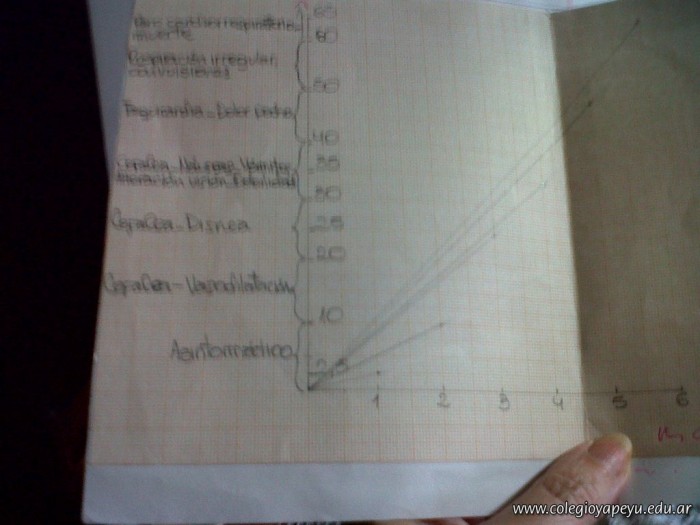 Paro cardiorrespiratorio
muerte
Respiración irregular,
convulsiones
Taquicardia - Dolor pecho
Cefalea - Náuseas Vómitos
Debilidad
Cefalea - Disnea
Cefalea - Vasodilatación
Asintomático
60
50
40
35
30
25
20
10
1 2 3 4 5 6
www.colegioyapeyu.edu.ar